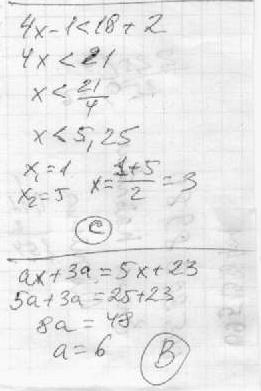 4x-1<18+2
4x<21
x<21/4
x<5,25
x₁=1
x₂=5 x=1+5/2=3
C
ax+3a=5x+23
5a+3a=25+23
8a=48
a=6 B